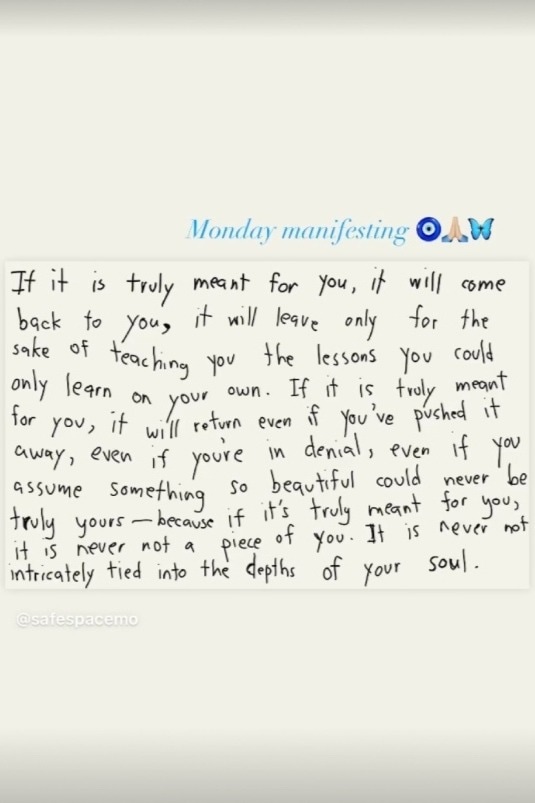 Monday manifesting 🧿🙏🏼🦋
If it is truly meant for you, it will come
back to you, it will leave only for the
sake of teaching you the lessons you could
only learn on your own. If it is truly meant
for you, it will return even if you've pushed it
away, even if you're in denial, even if you
assume something so beautiful could never be
truly yours — because if it's truly meant for you,
it is never not a piece of you. It is never not
intricately tied into the depths of your soul.
@safespacemo